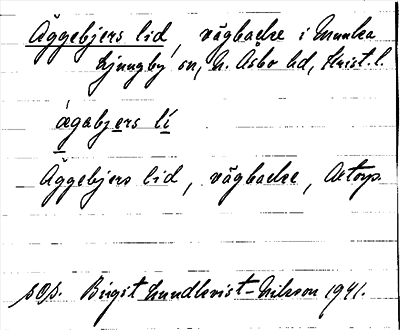 Äggebjers lid, vägbacke i Munka
Ljungby sn, N. Åsbo hd, Krist. l.
ǽgabjers lí
Äggebjers lid, vägbacke, Axtorp.
sop. Birgit Lundkvist-Nilsson 1941.